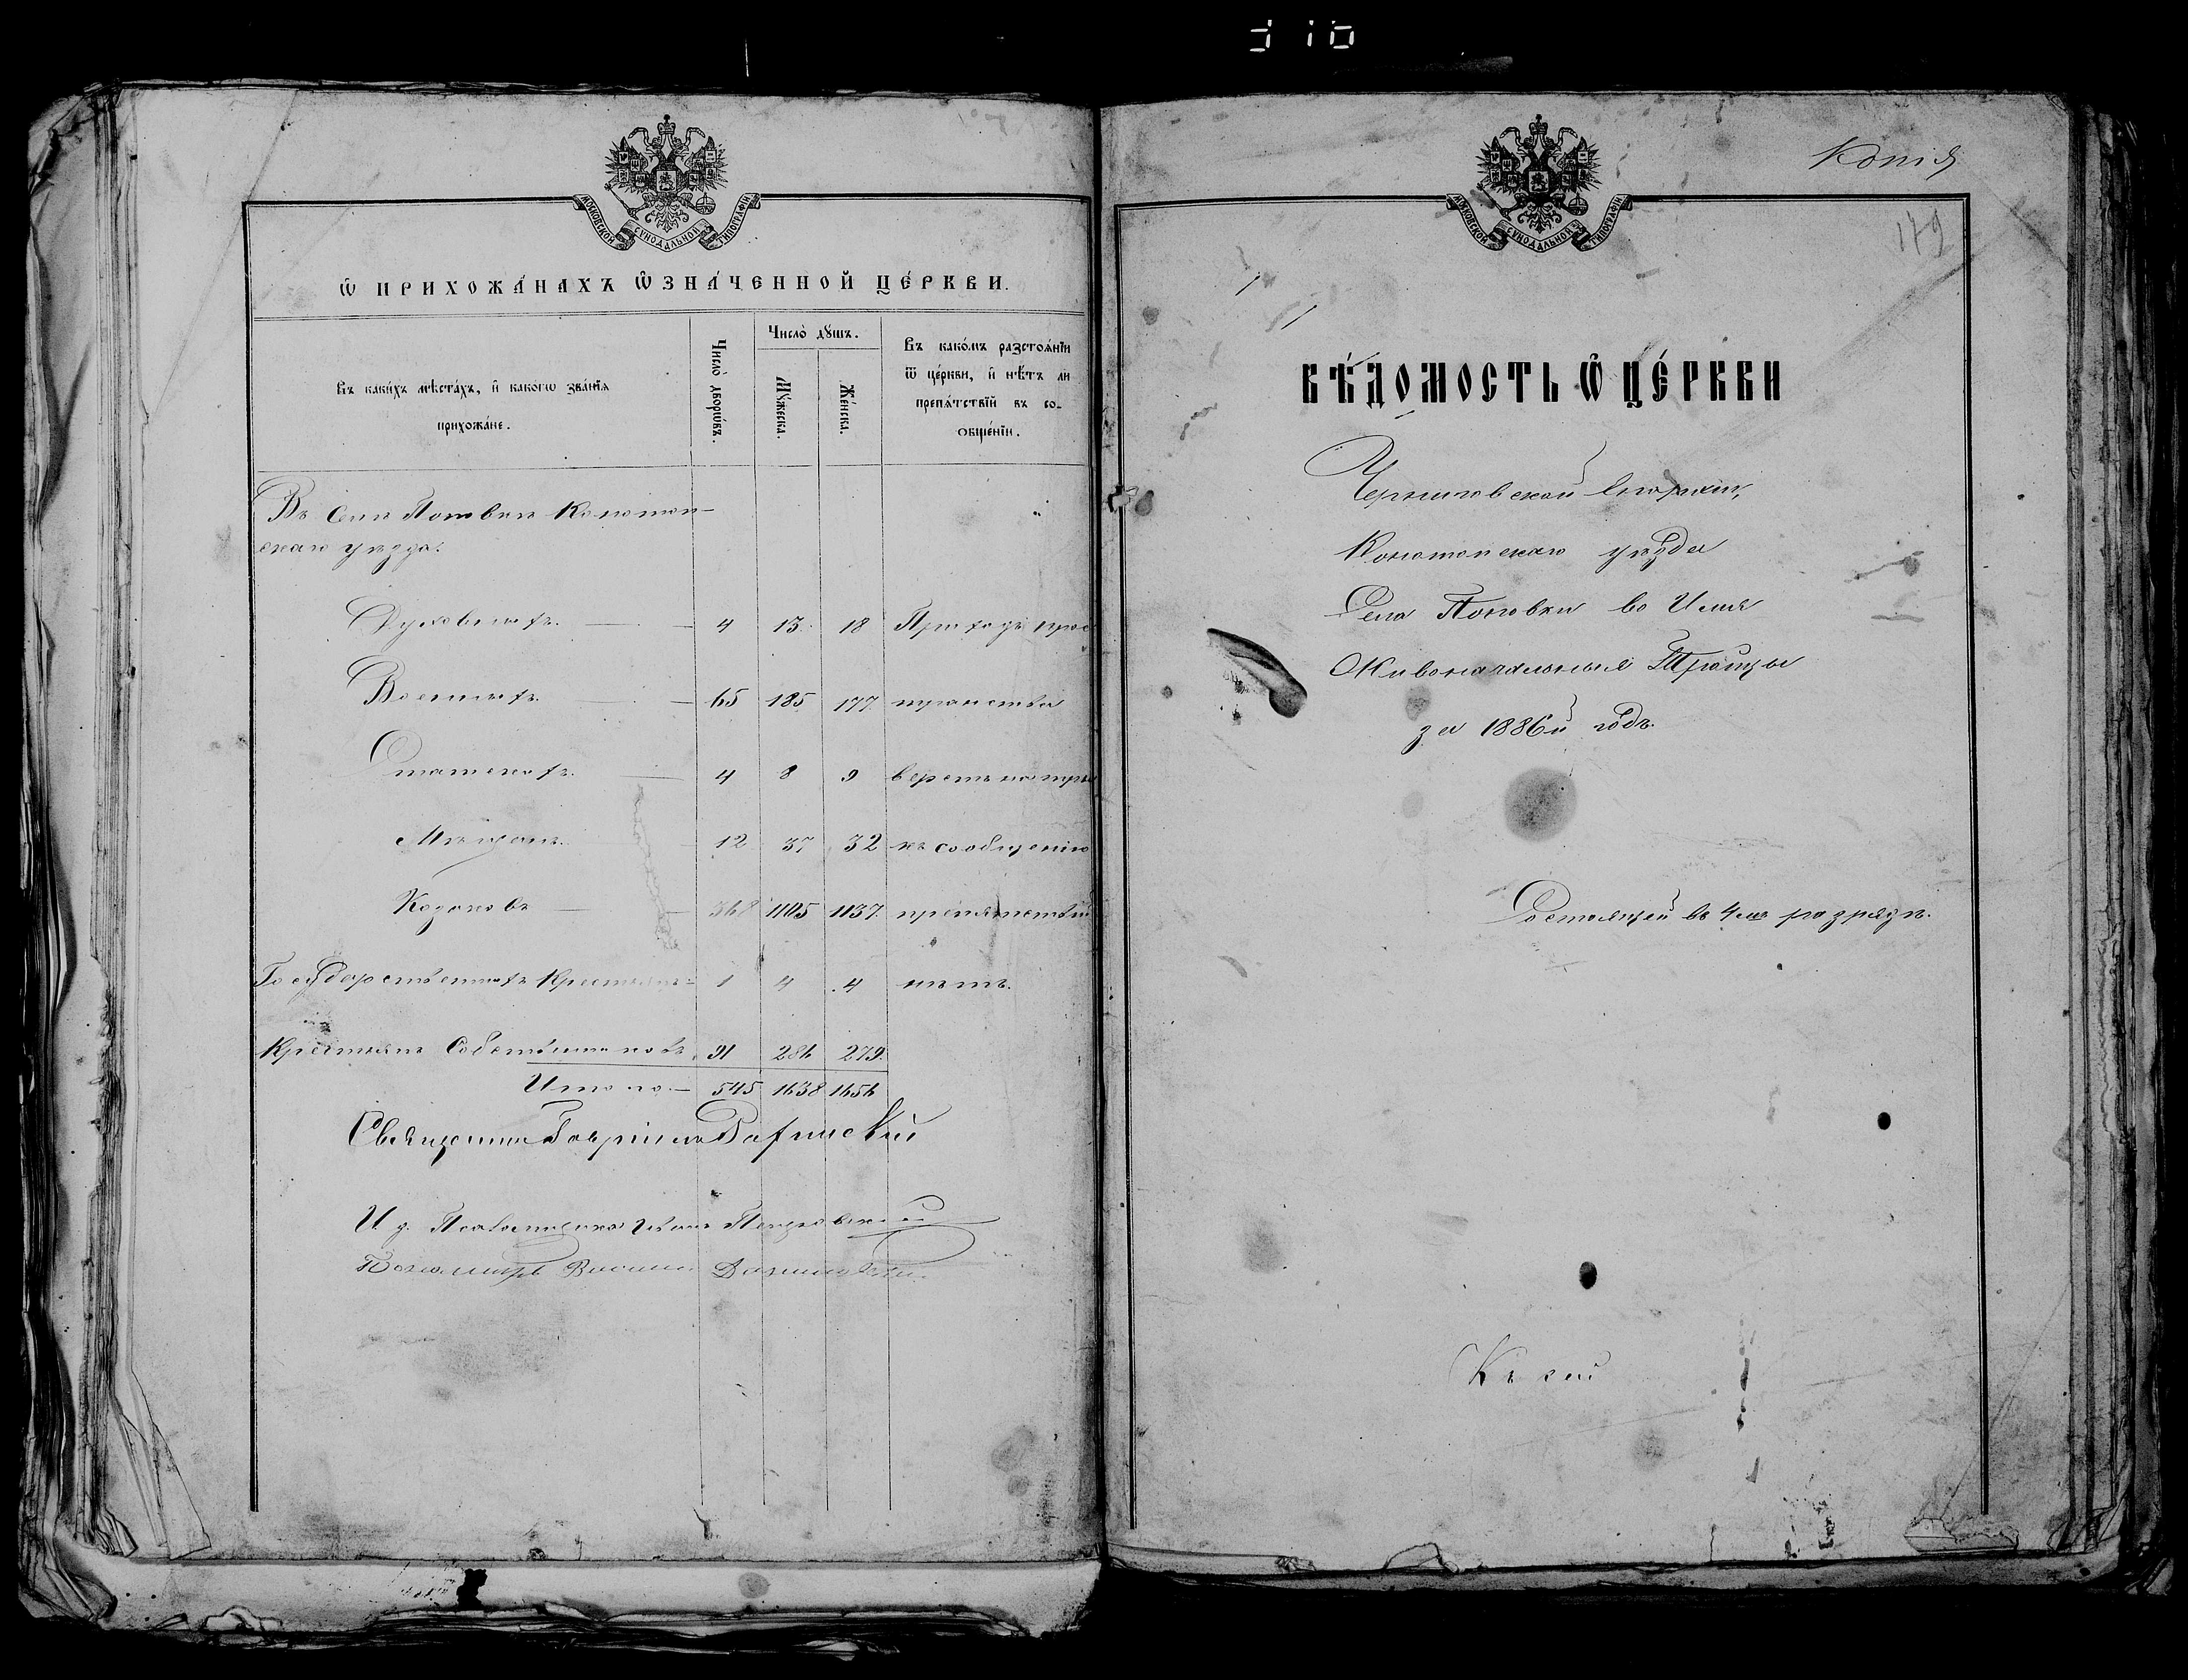 МОСКОВСКОЙ СѴНОДАЛЬНОЙ ТИПОГРАФІИ
Ѡ ПРИХОЖА́НАХЪ Ѡ҆ЗНА́ЧЕННОЙ ЦЕ́РКВИ.
Въ каки́хъ мѣста́хъ, и҆ како́гѡ зва́нїѧ
прихожа́не.
Число̀ дворѡ́въ.
Число̀ дꙋ́шъ.
Мꙋ́жеска.
Же́нска.
Въ како́мъ разстоѧ́нїи
ѿ це́ркви, и҆ нѣ́тъ ли
препѧ́тствїй въ со-
ѻбще́нїи.
Въ Селѣ Поповкѣ Конотоп-
скаго уѣзда:
Духовныхъ. — 4 13. 18 Приходъ прос
Военныхъ. — 65 185 177. транства
Статскихъ. — 4 8 9 верстъ на три
Мѣщанъ. 12 37 32 къ сообщенію
Козаковъ — 368 1105 1137. препятствій
Государственныхъ Крестьянъ 1 4 4 нѣтъ.
Крестьянъ Собственниковъ. 91 286 279.
Итого — 545 1638 1656
Священникъ Гавріилъ
И. д. Псаломщика Иванъ
Пономарь
Копія
МОСКОВСКОЙ СѴНОДАЛЬНОЙ ТИПОГРАФІИ
ВѢ́ДОМОСТЬ Ѡ҆ ЦЕ́РКВИ
Черниговской Епархіи,
Конотопскаго уѣзда
Села Поповки во Имя
Живоначальныя Троицы
за 1886й годъ.
Состоящей въ 4мъ разрядѣ.
Къ сей